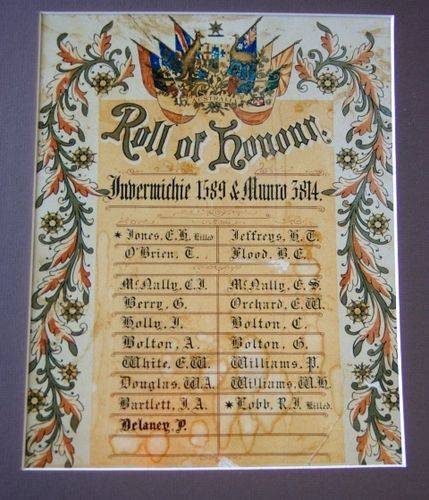 AUSTRALIA
Roll of Honour.
Invermichie 1589 & Munro 3814.
* Jones, E.H. Killed
Jeffreys, H. T.
O'Brien, T.
Flood, B. E.
McNally, C.J.
McNally, E. S.
Berry, G.
Orchard, E. W.
Holly, J.
Bolton, C.
Bolton, A.
Bolton, G.
White, E. W.
Williams, P.
Douglas, W.A.
Williams, W.H.
Bartlett, J. A.
* Lobb, R.J. Killed.
Delaney, P.